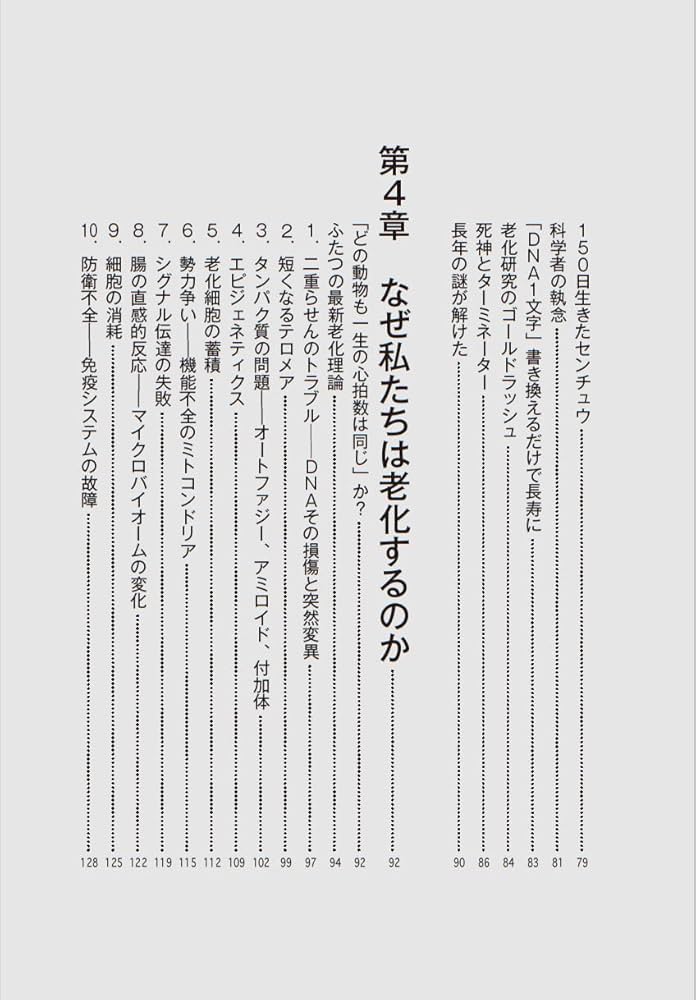 150日生きたセンチュウ………79
科学者の執念………81
「DNA1文字」書き換えるだけで長寿に………83
老化研究のゴールドラッシュ………84
死神とターミネーター………86
長年の謎が解けた………90
第4章 なぜ私たちは老化するのか………92
「どの動物も一生の心拍数は同じ」か？………92
ふたつの最新老化理論………94
1．二重らせんのトラブル――DNAその損傷と突然変異………97
2．短くなるテロメア………99
3．タンパク質の問題――オートファジー、アミロイド、付加体………102
4．エピジェネティクス………109
5．老化細胞の蓄積………112
6．勢力争い――機能不全のミトコンドリア………115
7．シグナル伝達の失敗………119
8．腸の直感的反応――マイクロバイオームの変化………122
9．細胞の消耗………125
10．防衛不全――免疫システムの故障………128